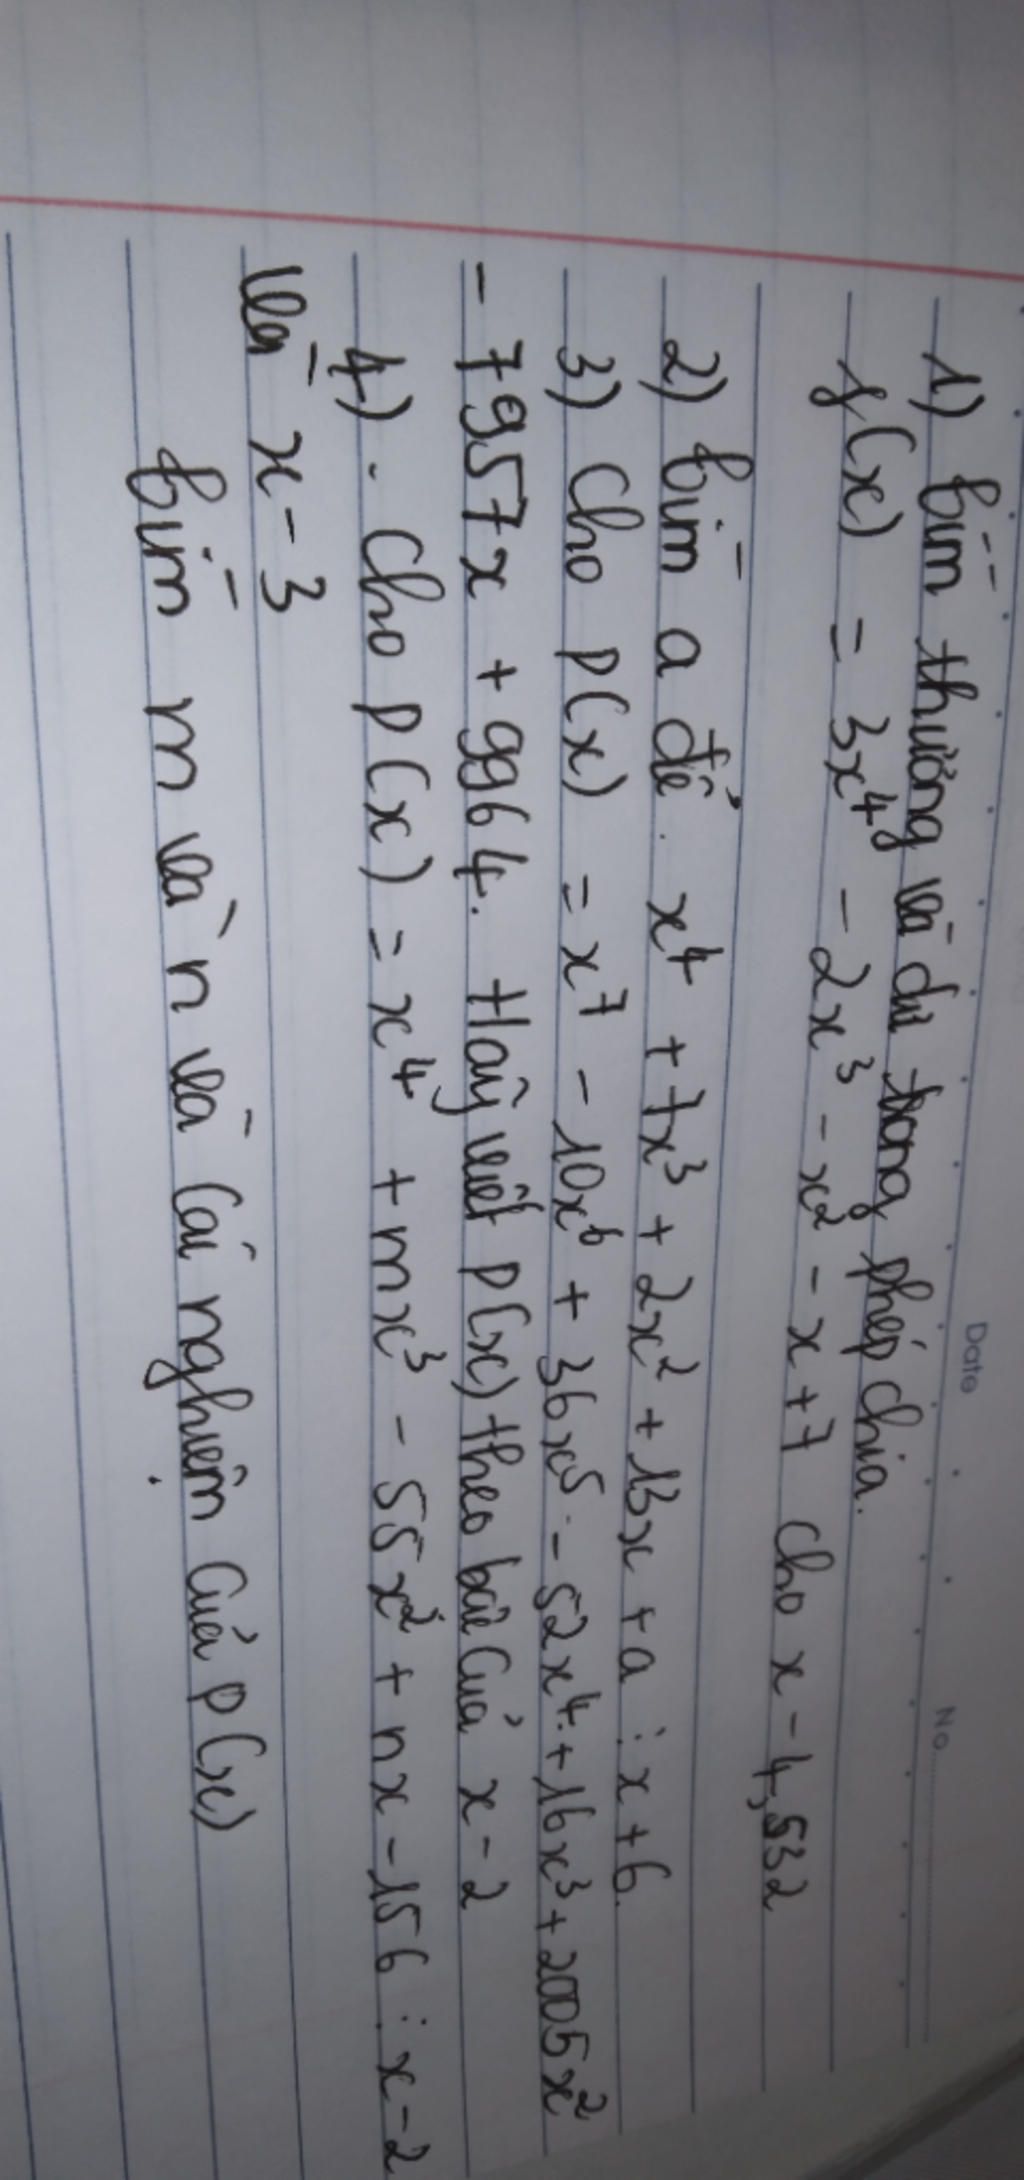 Date
No
1) Tìm thương và dư trong phép chia.
f(x) = 3x⁴ - 2x³ - x² - x + 7 cho x - 4,532
2) Tìm a để x⁴ + 7x³ + 2x² + 13x + a ⋮ x + 6
3) Cho P(x) = x⁷ - 10x⁶ + 36x⁵ - 52x⁴ + 16x³ + 2005x²
- 7957x + 9964. Hãy viết P(x) theo bậc của x - 2
4). Cho P(x) = x⁴ + mx³ - 55x² + nx - 156 ⋮ x - 2
và x - 3
Tìm m và n và các nghiệm của P(x)